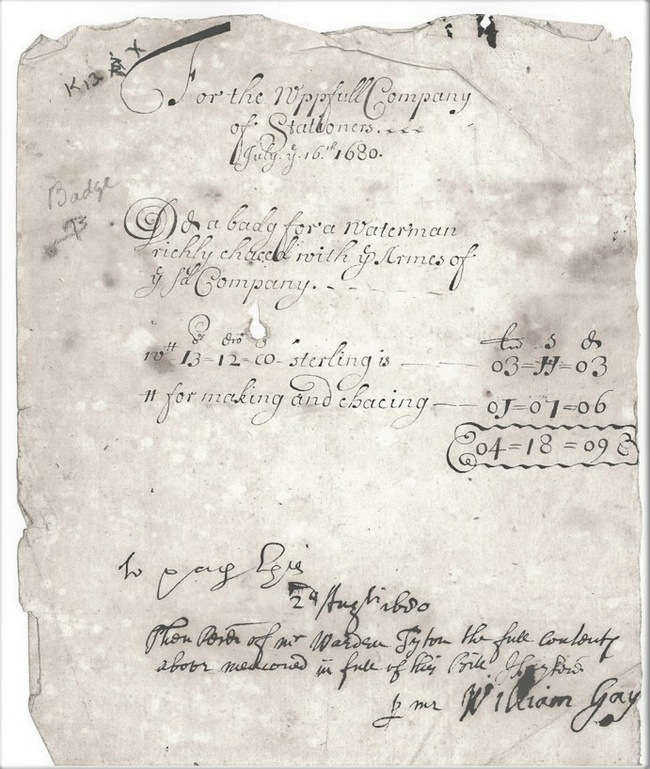 K13
For the Wppfull Company
of Stationers
July. ye. 16th 1680.
Badge
a badg for a Waterman
richly chaced with ye Armes of
ye sd Company.
oz dw g
wtt 13=12=00 sterling is
li s d
03=11=03
tt for making and chacing
01=07=06
04=18=09
to pay
2d Augst 1680
Then Recd of mr Warden Tyton the full contents
above menconed in full of this bill I say Recd
p mr William Gay